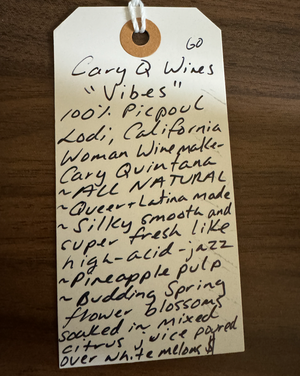 60
Cary Q Wines
"Vibes"
100% Picpoul
Lodi, California
Woman Winemaker
Cary Quintana
~ALL NATURAL
~Queer+Latina made
~Silky smooth and
super fresh like
high-acid-jazz
~Pineapple pulp
~Budding Spring
flower blossoms
soaked in mixed
citrus juice poured
over white melons